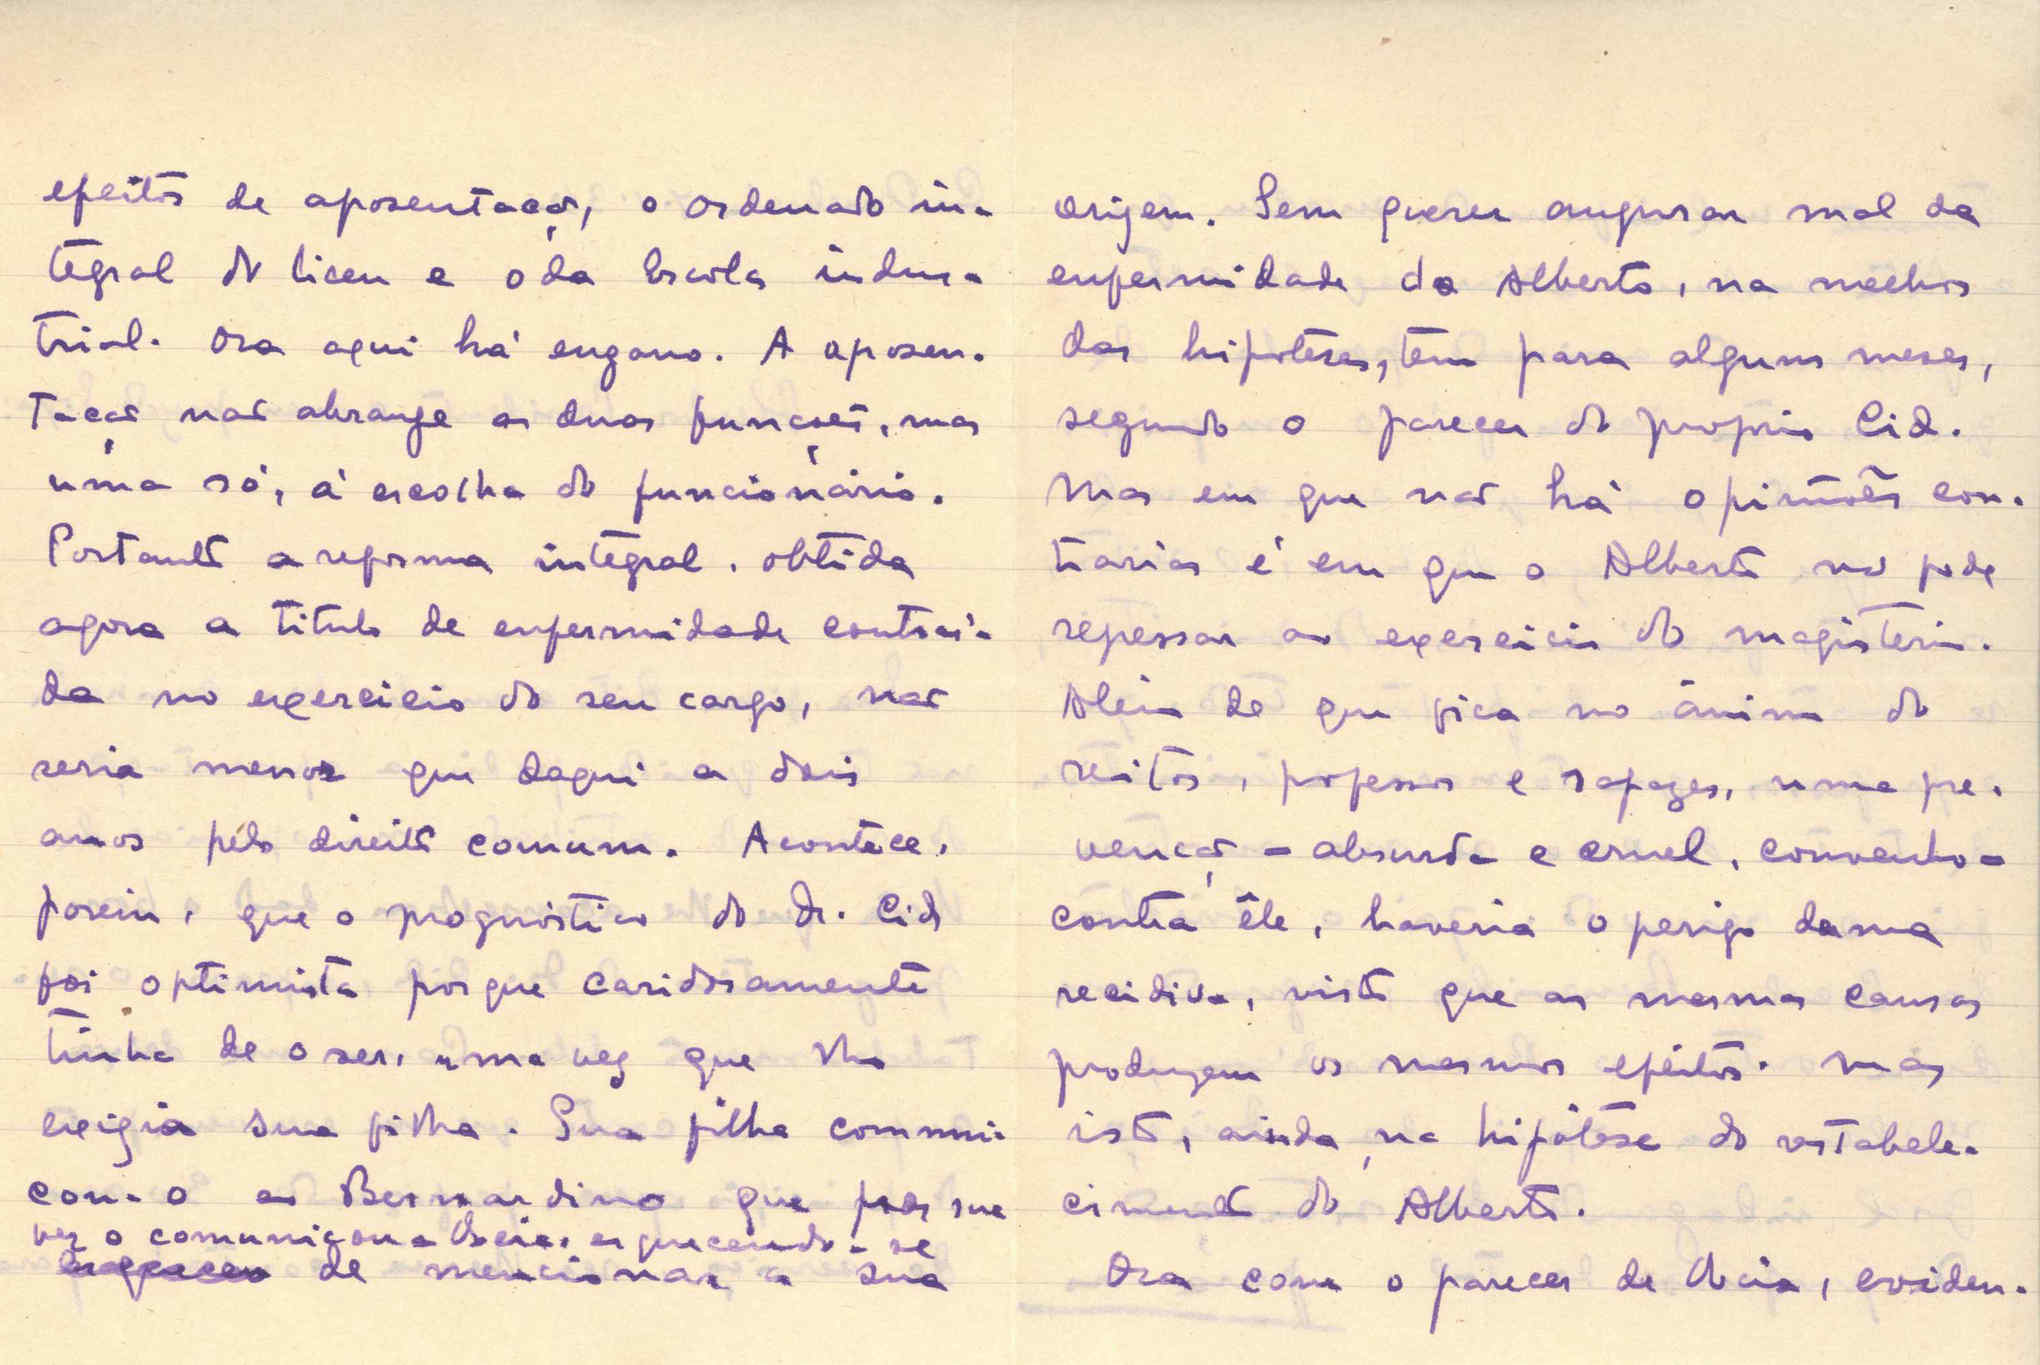 efeitos de aposentação, o ordenado in-
tegral do liceu e o da Escola indus-
trial. Ora aqui há engano. A aposen-
tação não abrange as duas funcções, mas
uma só, á escolha do funcionário.
Portanto a reforma integral, obtida
agora a titulo de enfermidade contraí-
da no exercicio do seu cargo, não
seria menor que daqui a dois
anos pelo direito comum. Acontece,
porem, que o prognóstico do dr. Cid
foi optimista porque caridosamente
tinha de o ser, uma vez que lho
exigia sua filha. Sua filha communi-
cou-o ao Bernardino que por sua
vez o comunicou a esquecendo-se
de mencionar a sua
origem. Sem querer augurar mal da
enfermidade do Alberto, na melhor
das hipóteses, tem para alguns meses,
segundo o parecer do proprio Cid.
Mas em que não há opiniões con-
trarias é em que o Alberto não pode
repessar ao exercicio do magisterio.
Além de que fica no ânimo do
reitor, professor e rapazes, uma pre-
venção - absurda e cruel, convenho -
contra êle, haveria o perigo duma
recidiva, visto que as mesmas causas
produzem os mesmos efeitos. Mas
isto, ainda na hipótese do restabele-
cimento do Alberto.
Ora com o parecer de eviden-